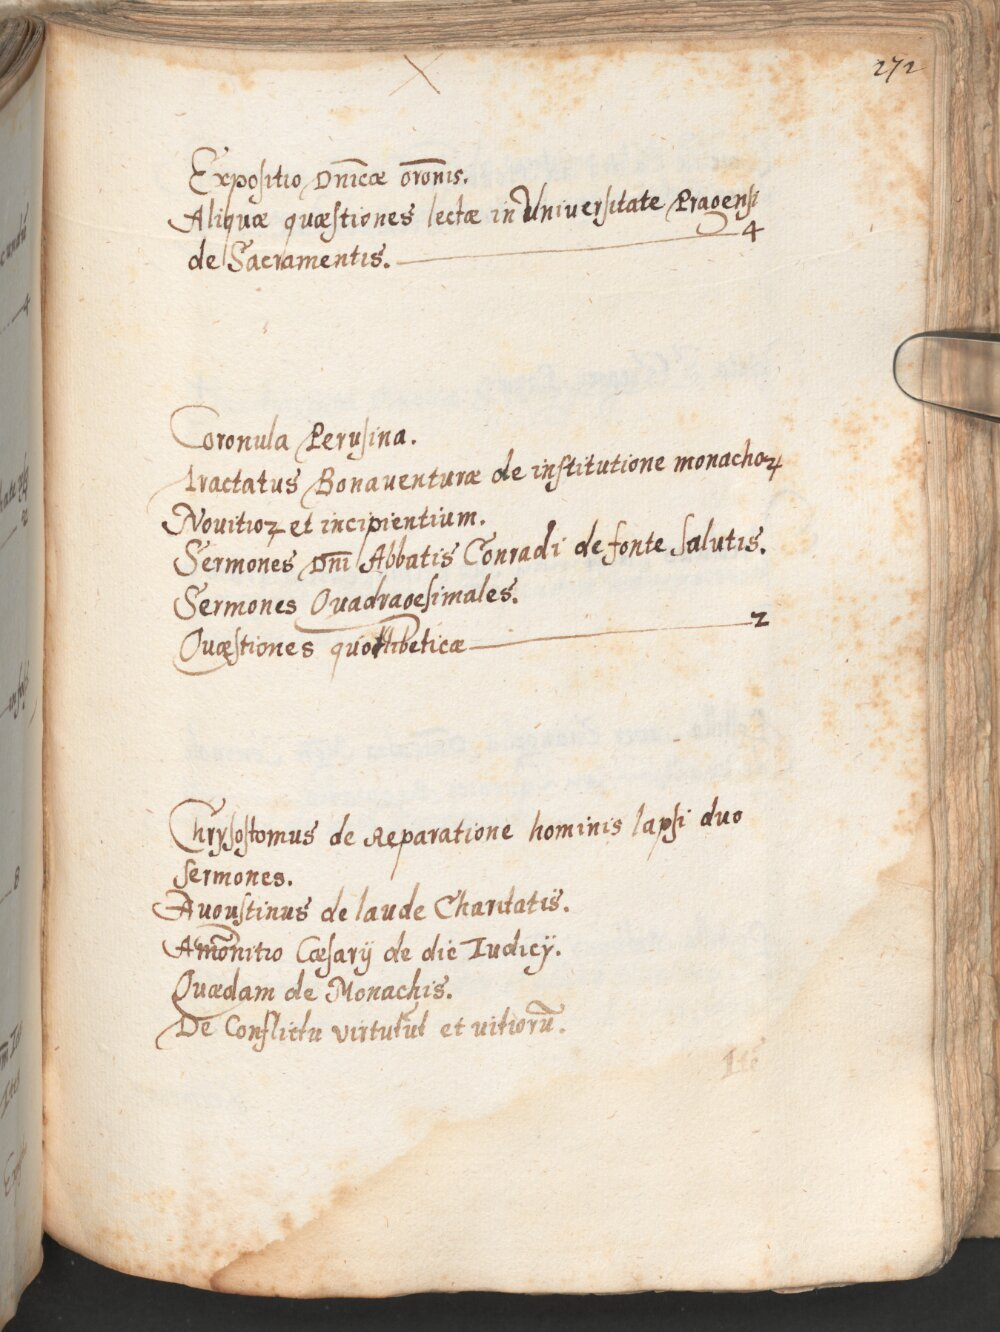 272
Expositio Dn̄icæ orōnis.
Aliquæ quæstiones lectæ in Universitate Pragensi
4
de Sacramentis.
Coronula Perusina.
Tractatus Bonaventuræ de institutione monachoꝝ
Nouitioꝝ et incipientium.
Sermones Dn̄i Abbatis Conradi de fonte Salutis.
Sermones Quadragesimales.
Quæstiones quotlibeticæ 2
Chrysostomus de Reparatione hominis lapsi duo
sermones.
Augustinus de laude Charitatis.
Amōnitio Cæsarij de die Iudicij.
Quædam de Monachis.
De Conflictu virtutū et uitiorū.
Itē